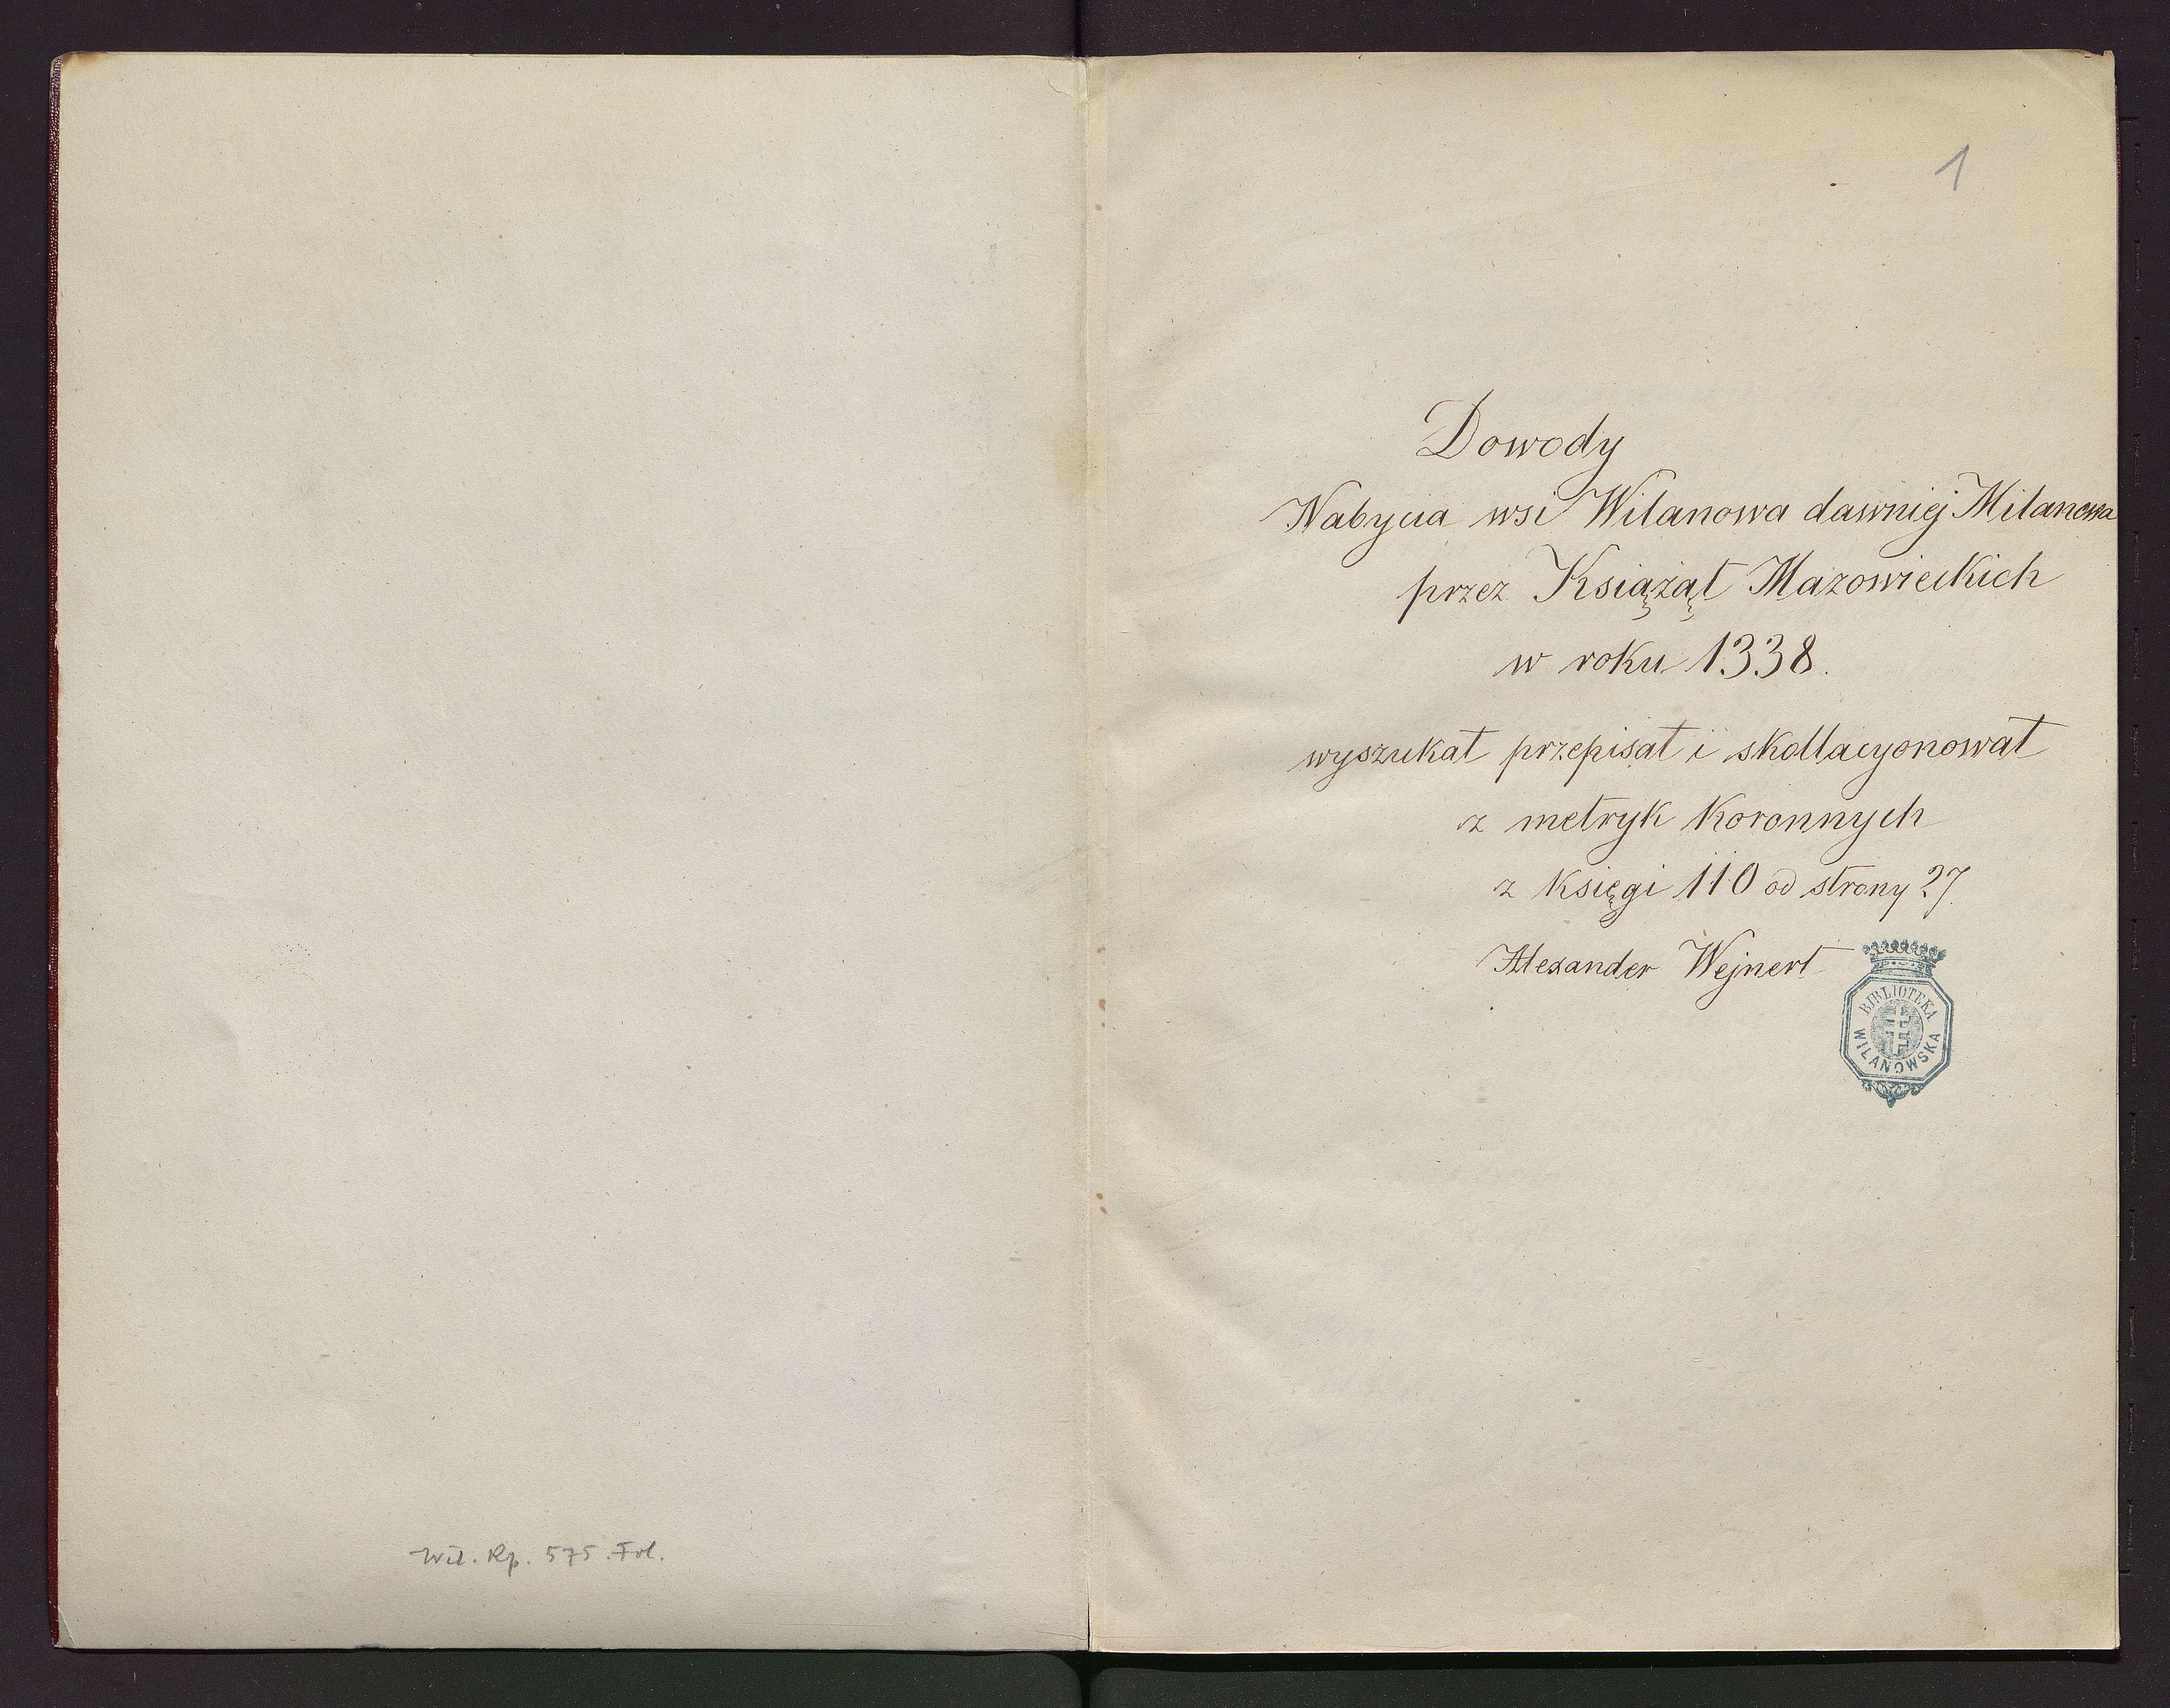 Wil. Rp. 575. Fol.
1
Dowody
Nabycia wsi Wilanowa dawniej Milanowa
przez Książąt Mazowieckich
w roku 1338.
wyszukał przepisał i skollacyonował
z metryk Koronnych
z księgi 110 od strony 27.
Alexander Wejnert
BIBLIOTEKA
WILANOWSKA